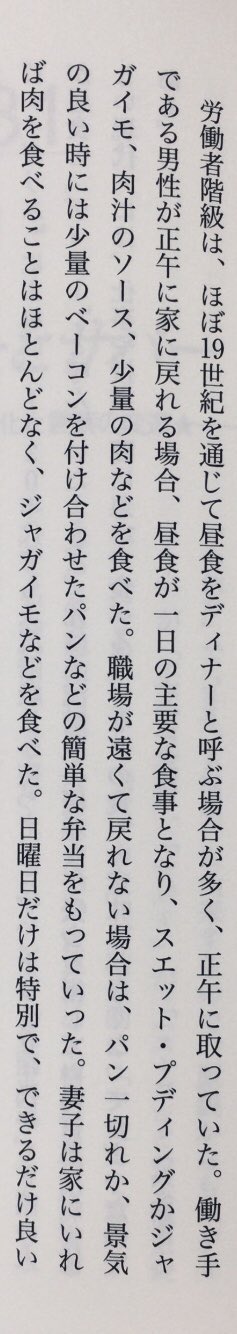 労働者階級は、ほぼ19世紀を通じて昼食をディナーと呼ぶ場合が多く、正午に取っていた。働き手
である男性が正午に家に戻れる場合、昼食が一日の主要な食事となり、スエット・プディングかジャ
ガイモ、肉汁のソース、少量の肉などを食べた。職場が遠くて戻れない場合は、パン一切れか、景気
の良い時には少量のベーコンを付け合わせたパンなどの簡単な弁当をもっていった。妻子は家にいれ
ば肉を食べることはほとんどなく、ジャガイモなどを食べた。日曜日だけは特別で、できるだけ良い